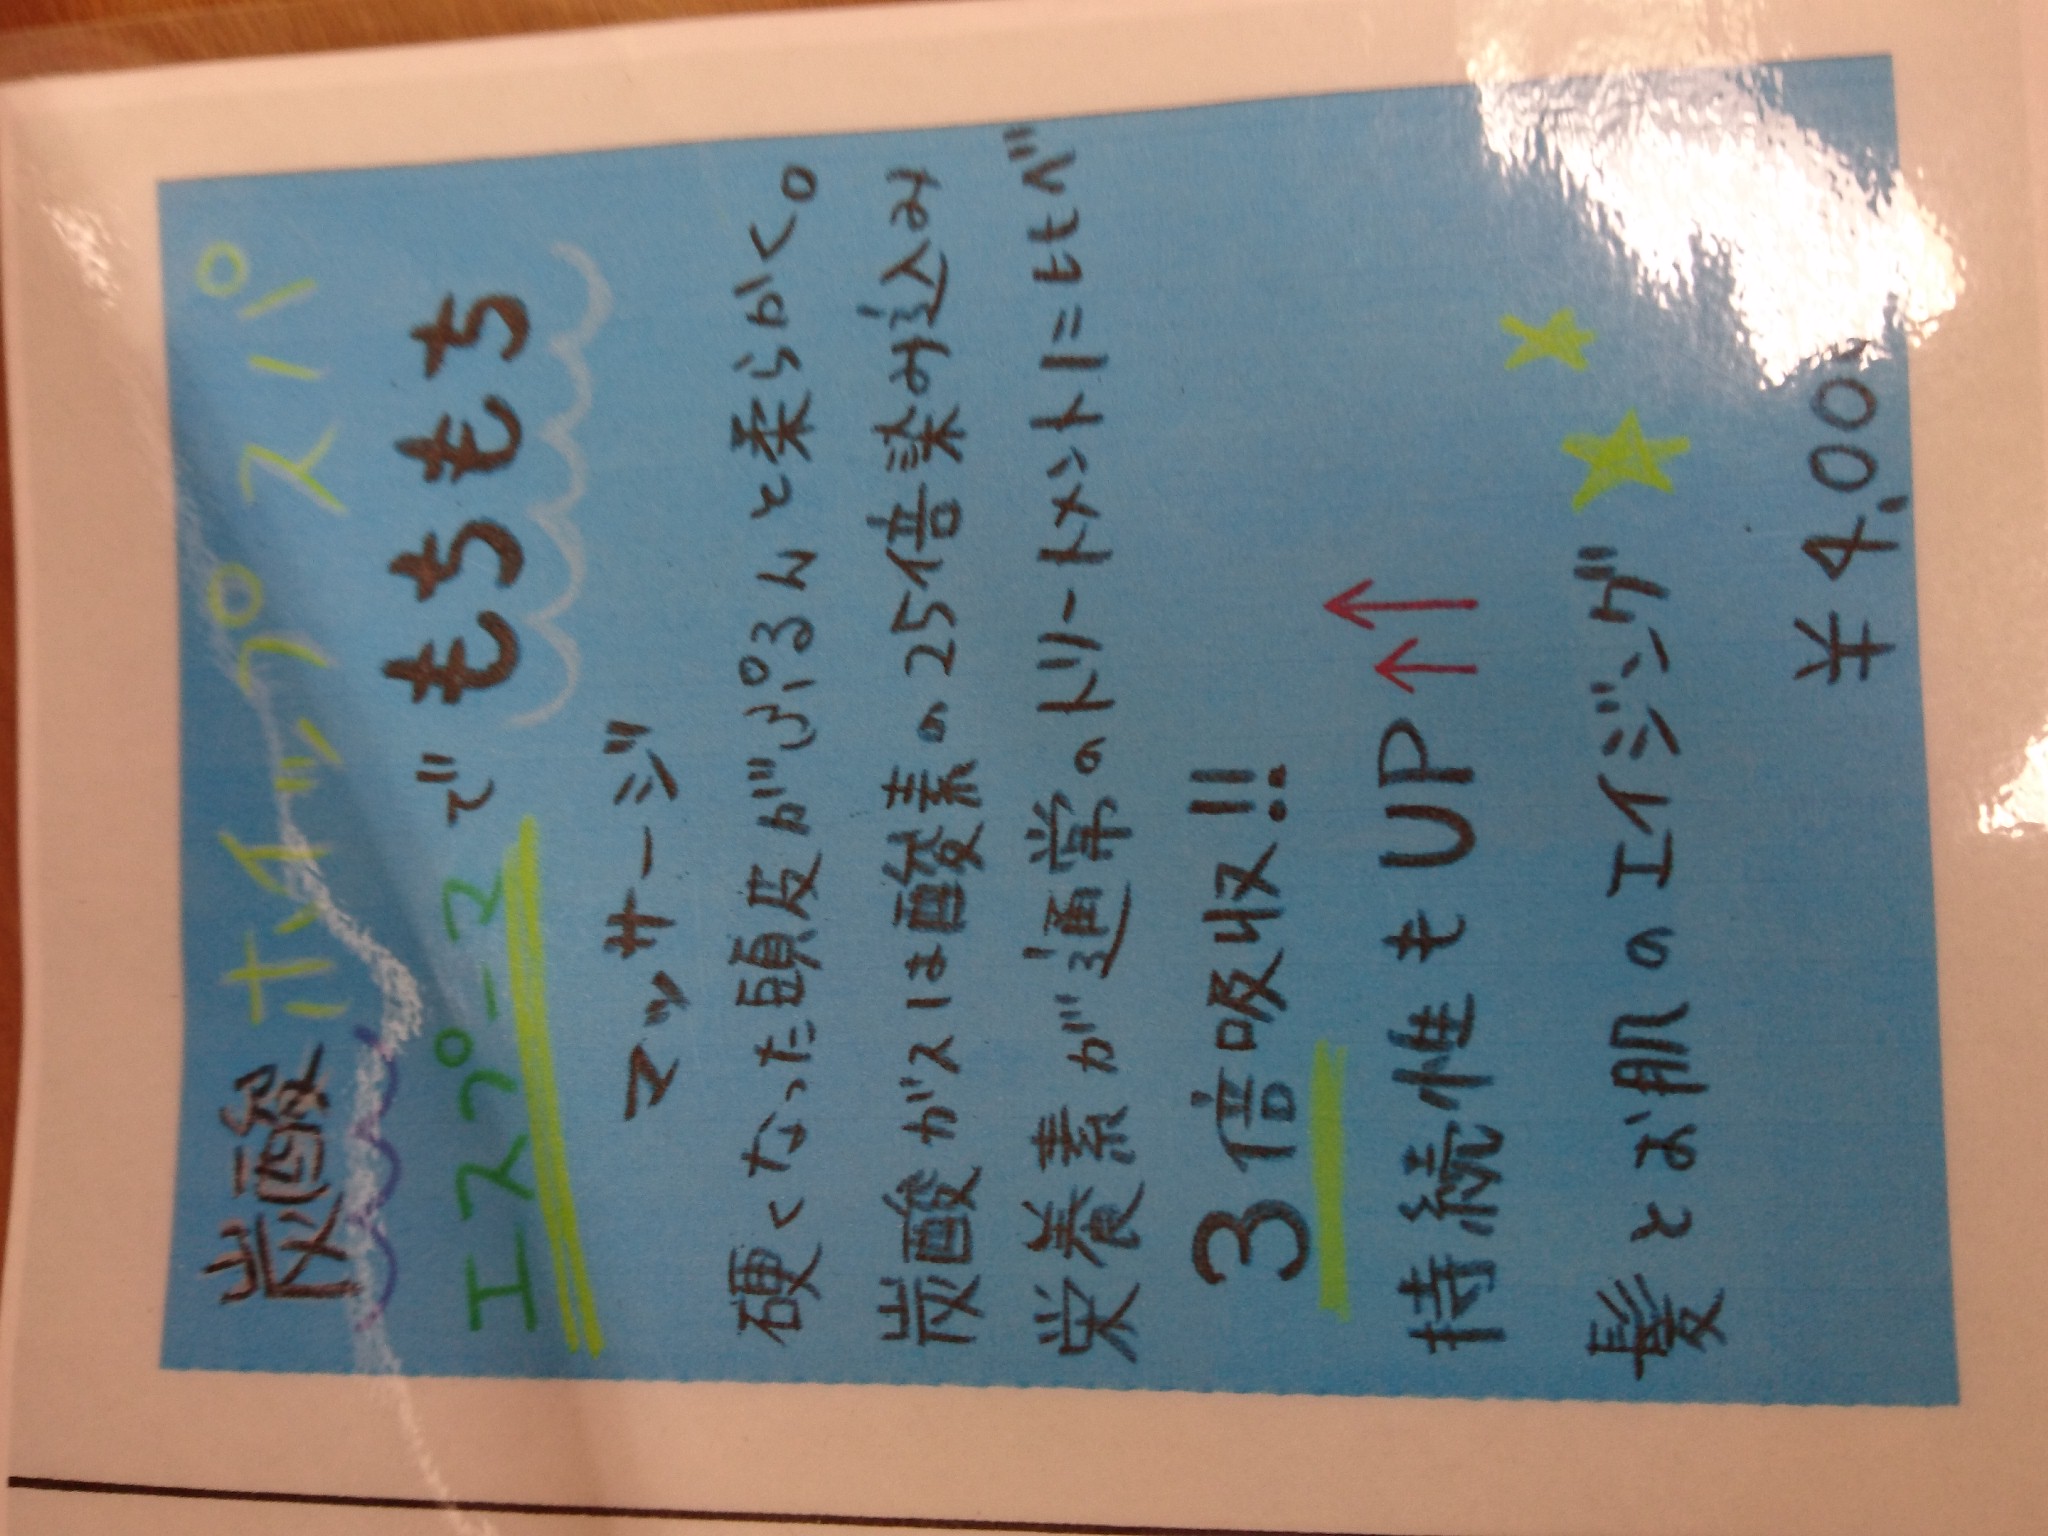 炭酸ホイップスパ
エスプーマでもちもち
マッサージ
硬くなった頭皮がぷるんと柔らかく。
炭酸ガスは酸素の25倍染み込み
栄養素が通常のトリートメントに比べ
3倍吸収!!
持続性もUP↑↑
髪とお肌のエイジング
¥4,000